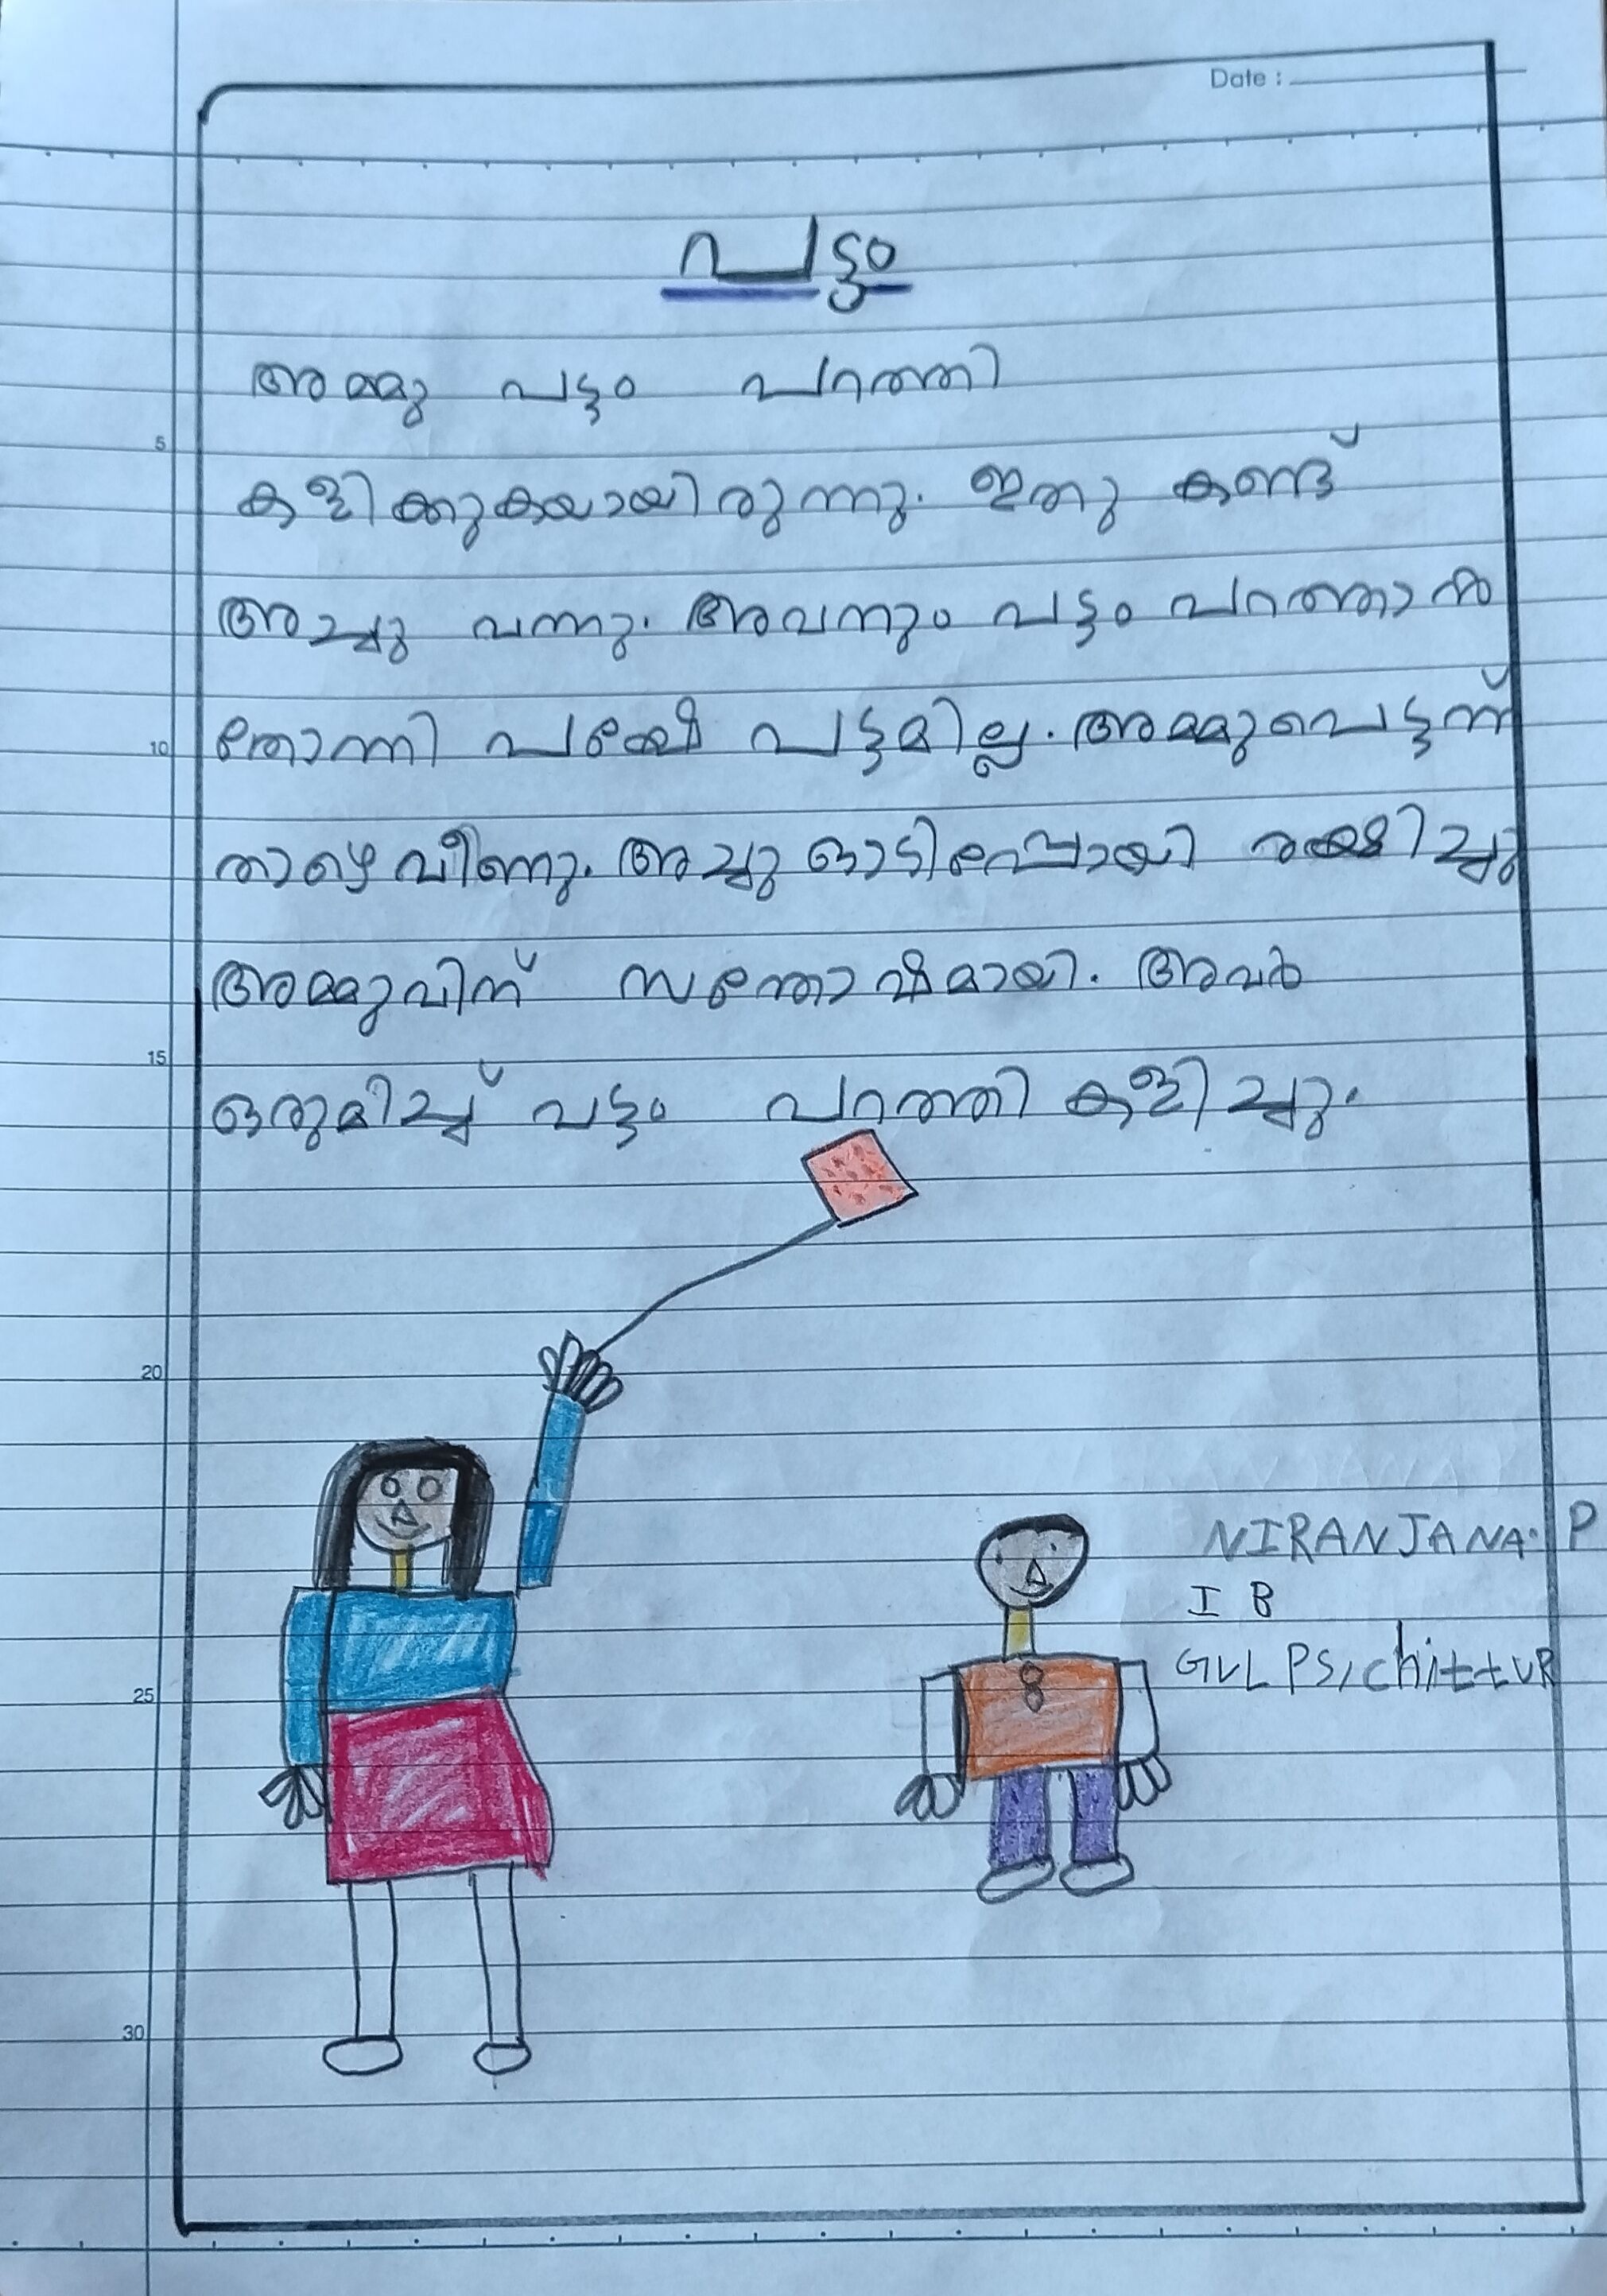 Date :
പട്ടം
അമ്മു പട്ടം പറത്തി
5
കളിക്കുകയായിരുന്നു. ഇതു കണ്ട്
അച്ചു വന്നു. അവനും പട്ടം പറത്താൻ
10 തോന്നി പക്ഷേ പട്ടമില്ല. അമ്മു പെട്ടന്ന്
താഴെ വീണു. അച്ചു ഓടിപ്പോയി രക്ഷിച്ചു
അമ്മുവിന് സന്തോഷമായി. അവർ
15
ഒരുമിച്ച് പട്ടം പറത്തി കളിച്ചു.
20
NIRANJANA. P
I B
GVLPS, chittUR
25
30